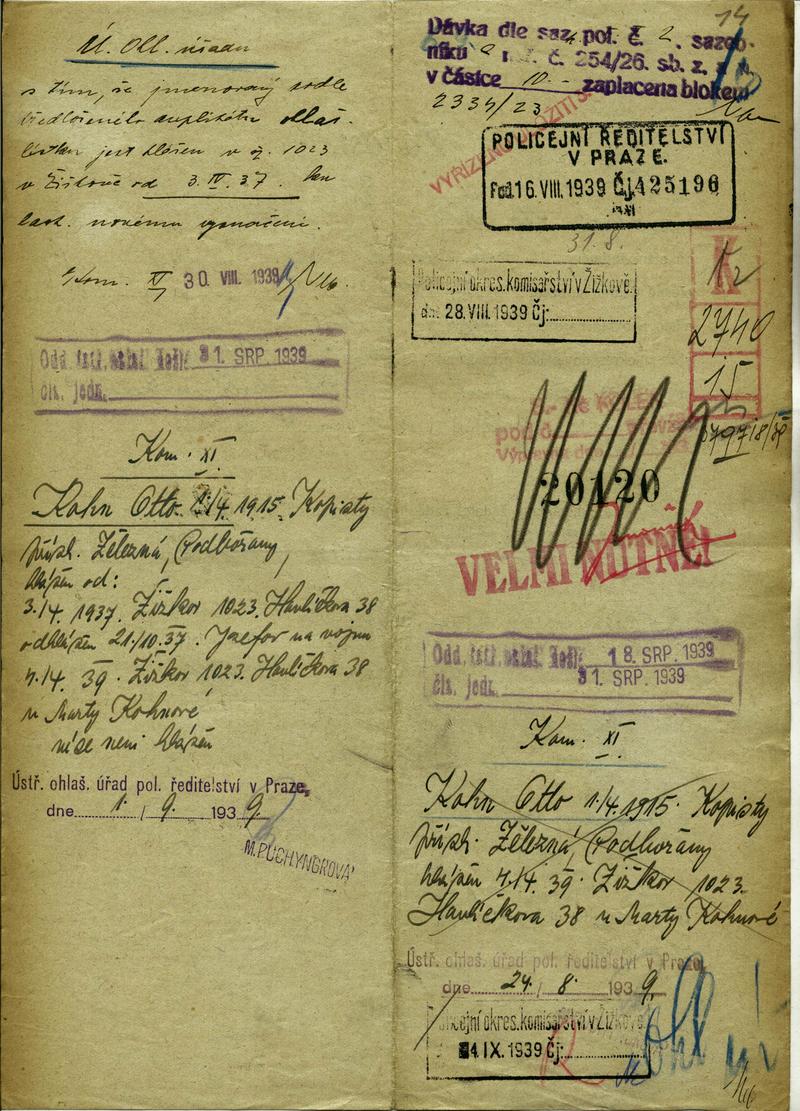 Ú. Ohl. úřadu
s tím, že jmenovaný podle
předloženého duplikátu ohlaš.
lístku jest hlášen v čp. 1023
v Žižkově od 3. IV. 37.
lask.
Kom. XI 30. VIII. 1939
31. SRP. 1939
čís. jedn.
Kom. XI
Kohn Otto 1./4. 1915. Kopisty
přísl. Železná, Podbořany,
hlášen od:
3./4. 1937. Žižkov 1023. Havlíčkova 38
odhlášen 21/10. 37. Josefov na vojnu
4./4. 39. Žižkov 1023. Havlíčkova 38
u Marty Kohnové
více není hlášen
Ústř. ohlaš. úřad pol. ředitelství v Praze,
dne 1. / 9. 1939.
M. PUCHYNGROVÁ
14
Dávka dle saz. pol. č. 2, sazeb-
níku č. 254/26. sb. z.
v částce 10.- zaplacena blokem
2334/23
VYŘÍZENO
POLICEJNÍ ŘEDITELSTVÍ
V PRAZE.
16. VIII. 1939 Čj. 425196
31. 8.
Policejní okres. komisařství v Žižkově.
dne 28. VIII. 1939 Čj:
K
2740
15
20120
VELMI NUTNÉ!
18. SRP. 1939
31. SRP. 1939
čís. jedn.
Kom. XI
Kohn Otto 1./4. 1915. Kopisty
přísl. Železná, Podbořany
hlášen 4./4. 39. Žižkov 1023.
Havlíčkova 38 u Marty Kohnové
Ústř. ohlaš. úřad pol. ředitelství v Praze,
dne 24. / 8. 1939.
Policejní okres. komisařství v Žižkově
4. IX. 1939 Čj: